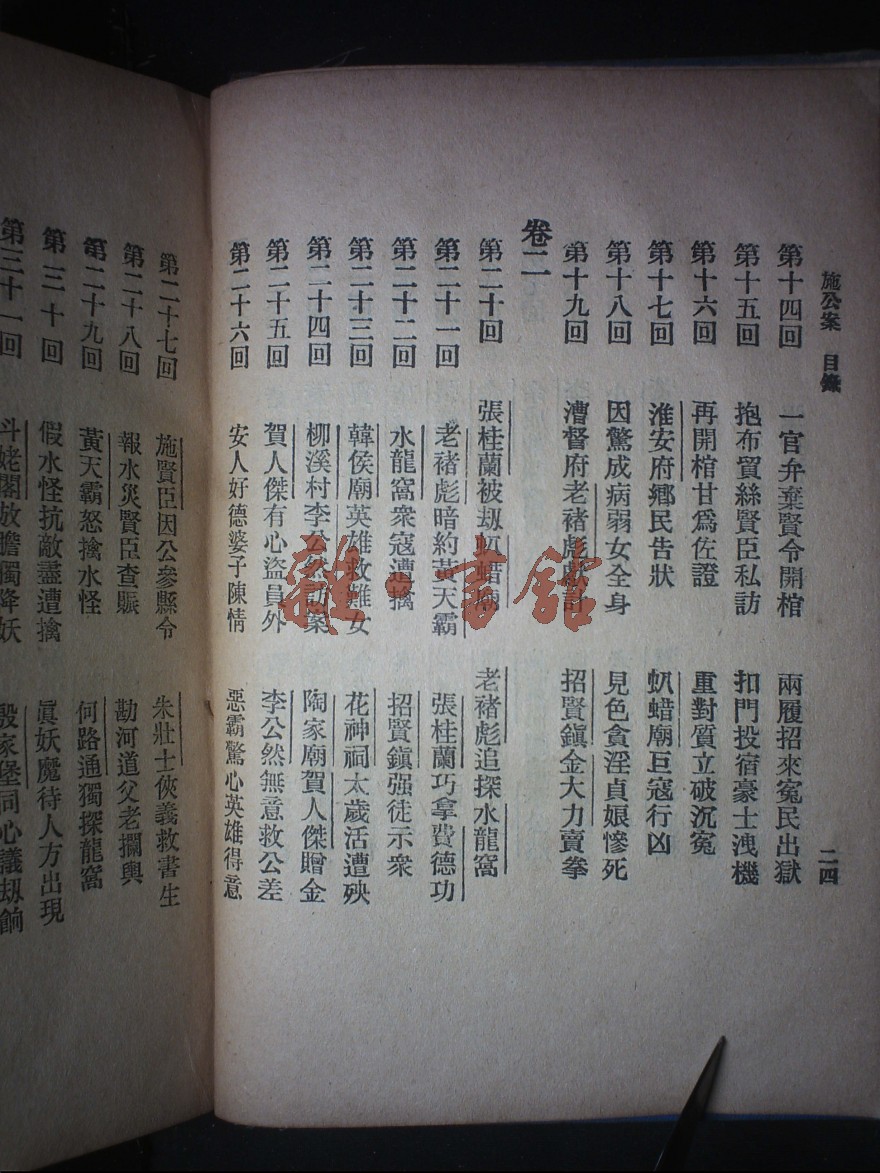 施公案　目錄
二四
第十四回　一官弁棄賢令開棺　兩履招來冤民出獄
第十五回　抱布貿絲賢臣私訪　扣門投宿豪士洩機
第十六回　再開棺甘爲佐證　重對質立破沉冤
第十七回　淮安府鄉民告狀　𧈢蜡廟巨寇行凶
第十八回　因驚成病弱女全身　見色貪淫貞娘慘死
第十九回　漕督府老褚彪獻計　招賢鎭金大力賣拳
卷二
第二十回　張桂蘭被刼𧈢蜡廟　老褚彪追探水龍窩
第二十一回　老褚彪暗約黃天霸　張桂蘭巧拿費德功
第二十二回　水龍窩衆寇遭擒　招賢鎭强徒示衆
第二十三回　韓侯廟英雄救難女　花神祠太歲活遭殃
第二十四回　柳溪村李公然訪案　陶家廟賀人傑贈金
第二十五回　賀人傑有心盜員外　李公然無意救公差
第二十六回　安人好德婆子陳情　惡霸驚心英雄得意
第二十七回　施賢臣因公參縣令　朱壯士俠義救書生
第二十八回　報水災賢臣查賑　勘河道父老攔輿
第二十九回　黃天霸怒擒水怪　何路通獨探龍窩
第三十回　假水怪抗敵盡遭擒　眞妖魔待人方出現
第三十一回　斗姥閣放膽獨降妖　殷家堡同心議刼餉
雜·書館